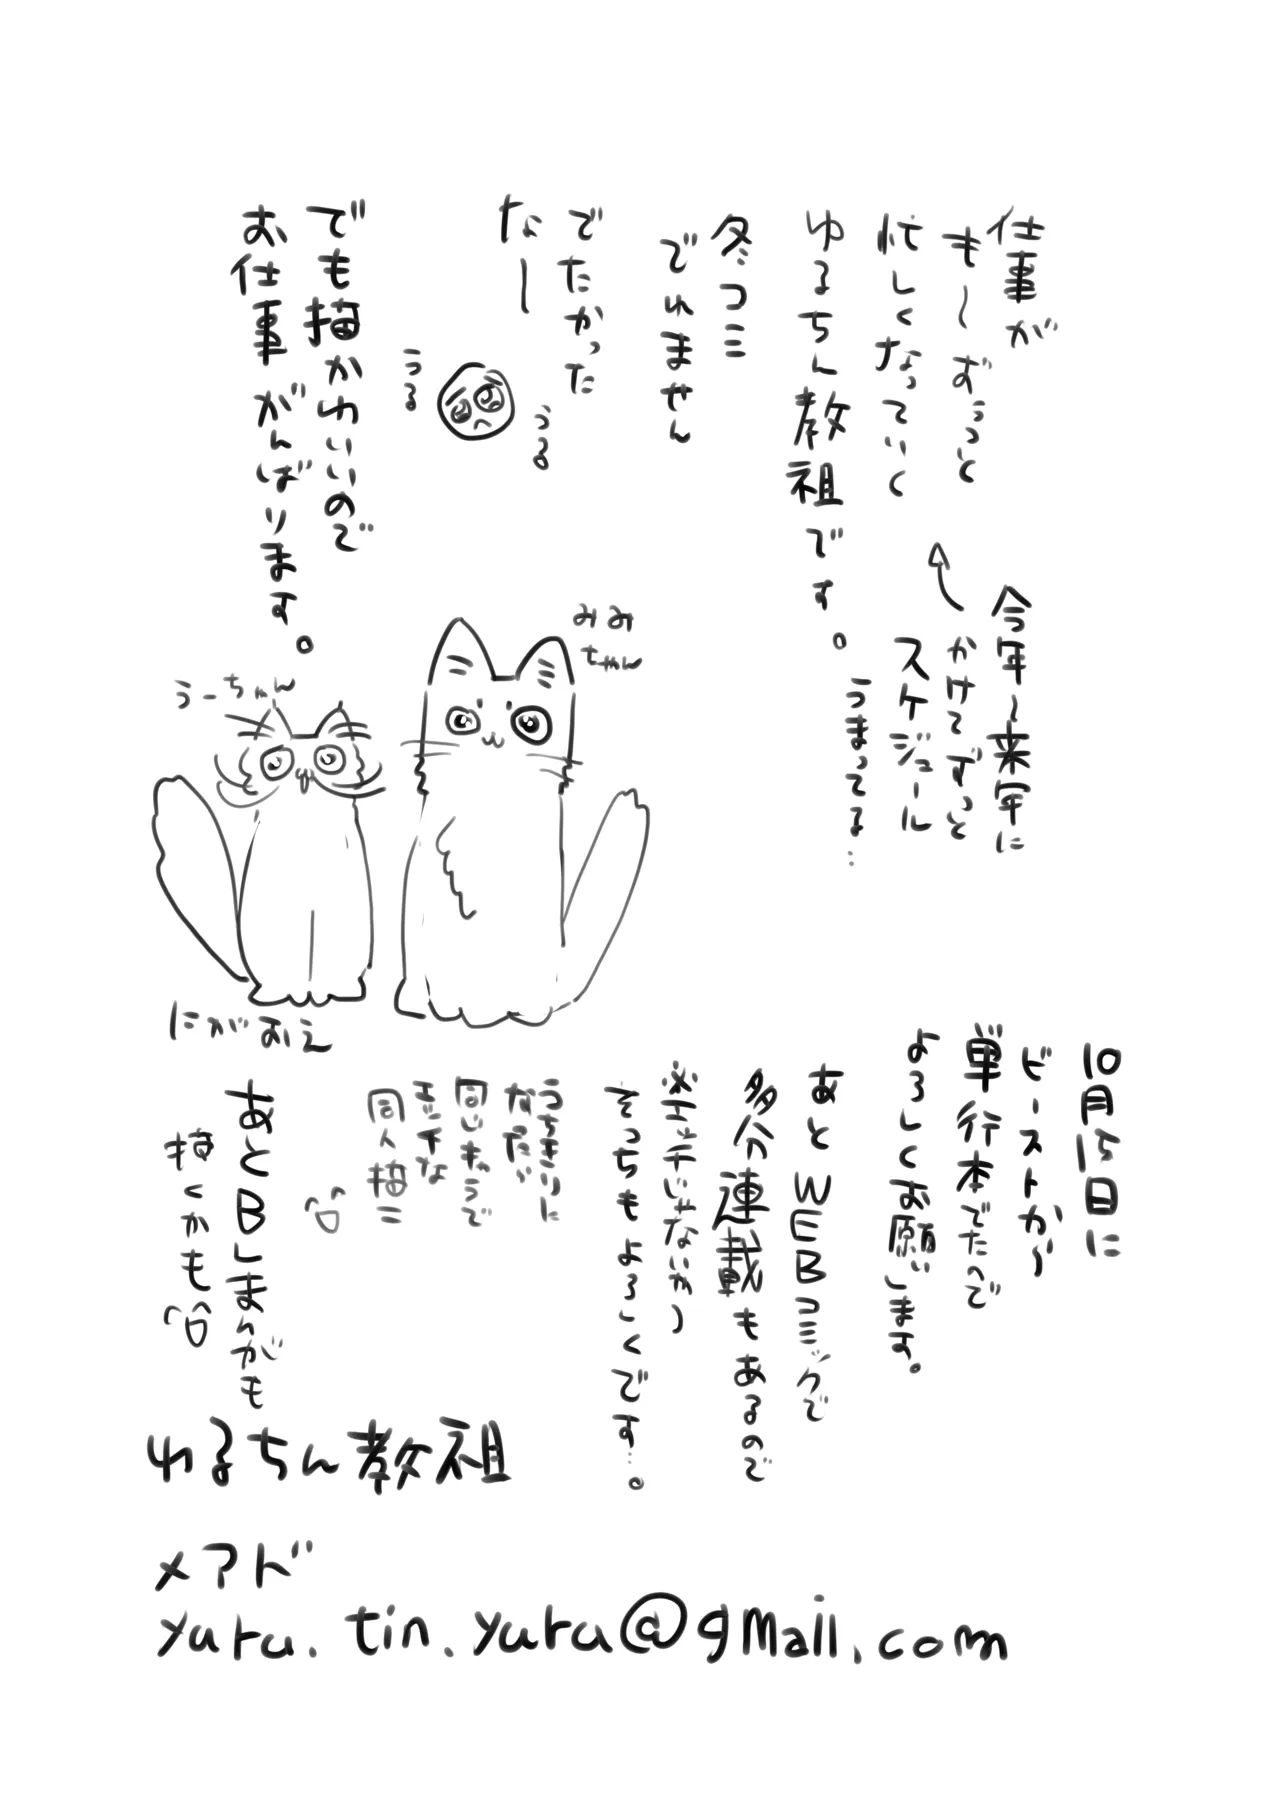 仕事が
も〜ずっと
忙しくなっていく
ゆるちん教祖です。
今年〜来年に
かけてずっと
スケジュール
うまってる…
冬コミ
でれません
でたかった
なー
うる
うる
でも描かわいいので
お仕事がんばります。
みみ
ちゃん
うーちゃん
にがおえ
10月15日に
ビーストから
単行本でたので
よろしくお願いします。
あとWEBコミックで
多分連載もあるので
※エッチじゃないか)
そっちもよろしくです…。
うちきりに
なったら
同じキャラで
エッチな
同人描こ
あとBLまんがも
描くかも
ゆるちん教祖
メアド
yuru.tin.yuru@gmail.com